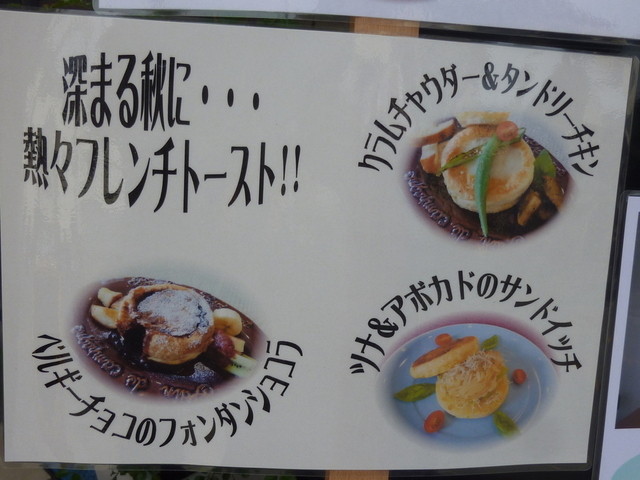 深まる秋に・・・
熱々フレンチトースト!!
クラムチャウダー&タンドリーチキン
ベルギーチョコのフォンダンショコラ
ツナ&アボカドのサンドイッチ